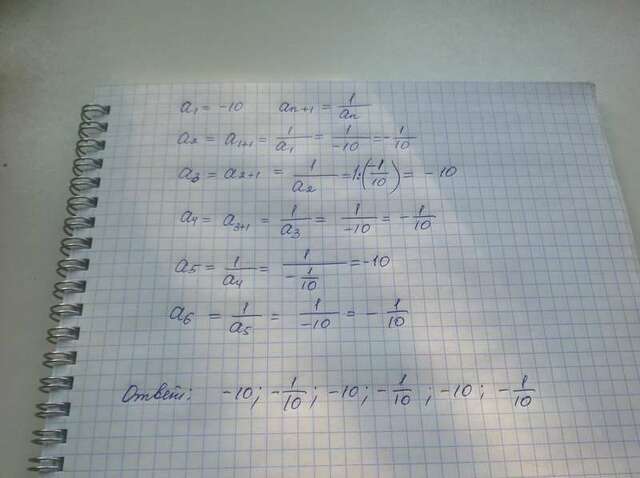 a₁ = -10 aₙ₊₁ = 1/aₙ
a₂ = a₁₊₁ = 1/a₁ = 1/-10 = -1/10
a₃ = a₂₊₁ = 1/a₂ = 1:(-1/10) = -10
a₄ = a₃₊₁ = 1/a₃ = 1/-10 = -1/10
a₅ = 1/a₄ = 1/(-1/10) = -10
a₆ = 1/a₅ = 1/-10 = -1/10
Ответ: -10; -1/10; -10; -1/10; -10; -1/10